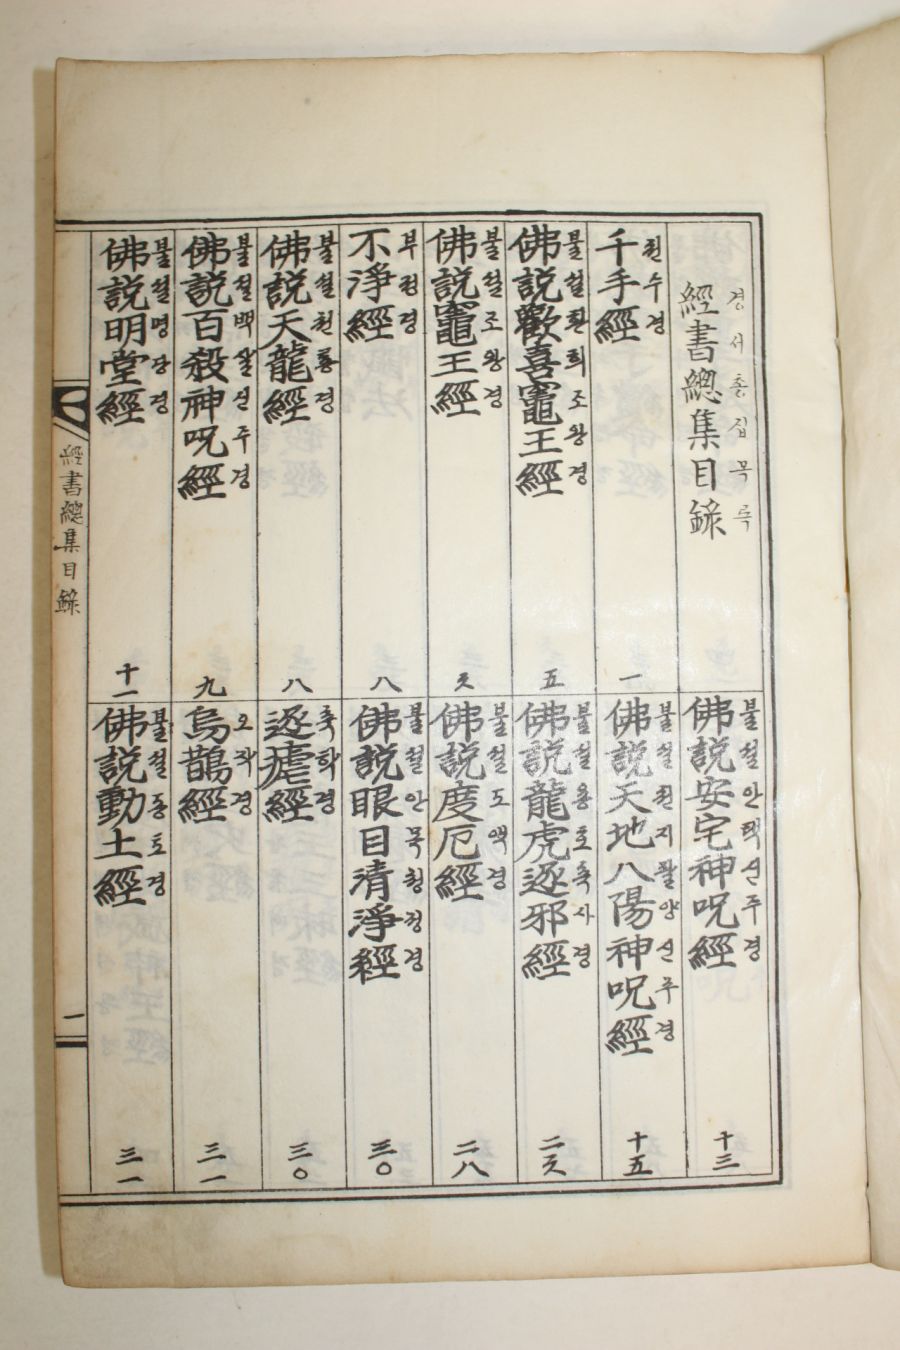 經書總集目錄
경서총집목록
千手經 一
천수경
佛說歡喜竈王經 五
불설환희조왕경
佛說竈王經
불설조왕경
不淨經 八
부정경
佛說天龍經 八
불설천룡경
佛說百殺神呪經 九
불설백살신주경
佛說明堂經 十一
불설명당경
佛說安宅神呪經 十三
불설안택신주경
佛說天地八陽神呪經 十五
불설천지팔양신주경
佛說龍虎逐邪經
불설용호축사경
佛說度厄經 二八
불설도액경
佛說眼目清淨経 三〇
불설안목청정경
逐瘧經 三〇
축학경
烏鵲經 三一
오작경
佛說動土經 三一
불설동토경
經書總集目錄
一